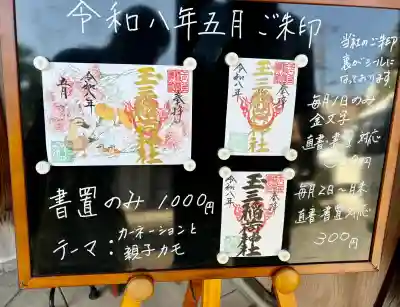 令和八年五月ご朱印
当社のご朱印
裏がシールに
なっております
五月
令和八年
奉拝
玉三稲荷神社
令和八年
奉拝
玉三稲荷神社
毎月1日のみ
金文字
直書・書置対応
令和八年
奉拝
玉三稲荷神社
毎月2日〜月末
直書・書置対応
300円
書置のみ 1,000円
テーマ:カーネーションと
親子カモ